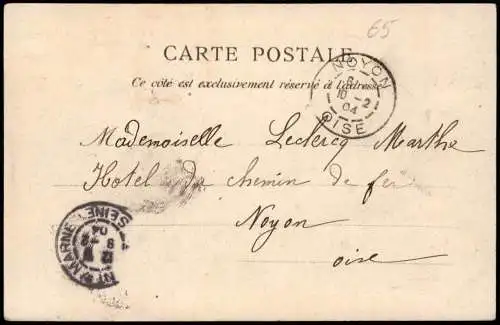 65
CARTE POSTALE
Ce côté est exclusivement réservé à l'adresse
NOYON
10 - 2
04
OISE
Mademoiselle Leclercq Marthe
Hotel du chemin de fer
Noyon
oise
MARNE
SEINE
04